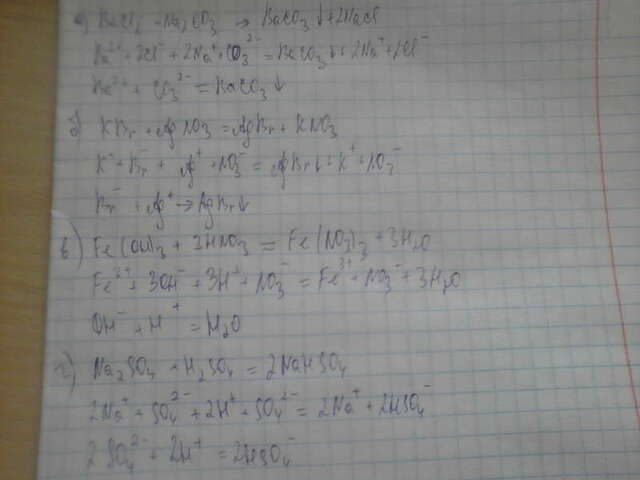 а) BaCl2 + Na2CO3 → BaCO3↓ + 2NaCl
Ba²⁺ + 2Cl⁻ + 2Na⁺ + CO3²⁻ = BaCO3↓ + 2Na⁺ + 2Cl⁻
Ba²⁺ + CO3²⁻ = BaCO3↓
б) KBr + AgNO3 = AgBr + KNO3
K⁺ + Br⁻ + Ag⁺ + NO3⁻ = AgBr↓ + K⁺ + NO3⁻
Br⁻ + Ag⁺ → AgBr↓
в) Fe(OH)3 + 3HNO3 = Fe(NO3)3 + 3H2O
Fe³⁺ + 3OH⁻ + 3H⁺ + NO3⁻ = Fe³⁺ + NO3⁻ + 3H2O
OH⁻ + H⁺ = H2O
г) Na2SO4 + H2SO4 = 2NaHSO4
2Na⁺ + SO4²⁻ + 2H⁺ + SO4²⁻ = 2Na⁺ + 2HSO4⁻
2SO4²⁻ + 2H⁺ = 2HSO4⁻